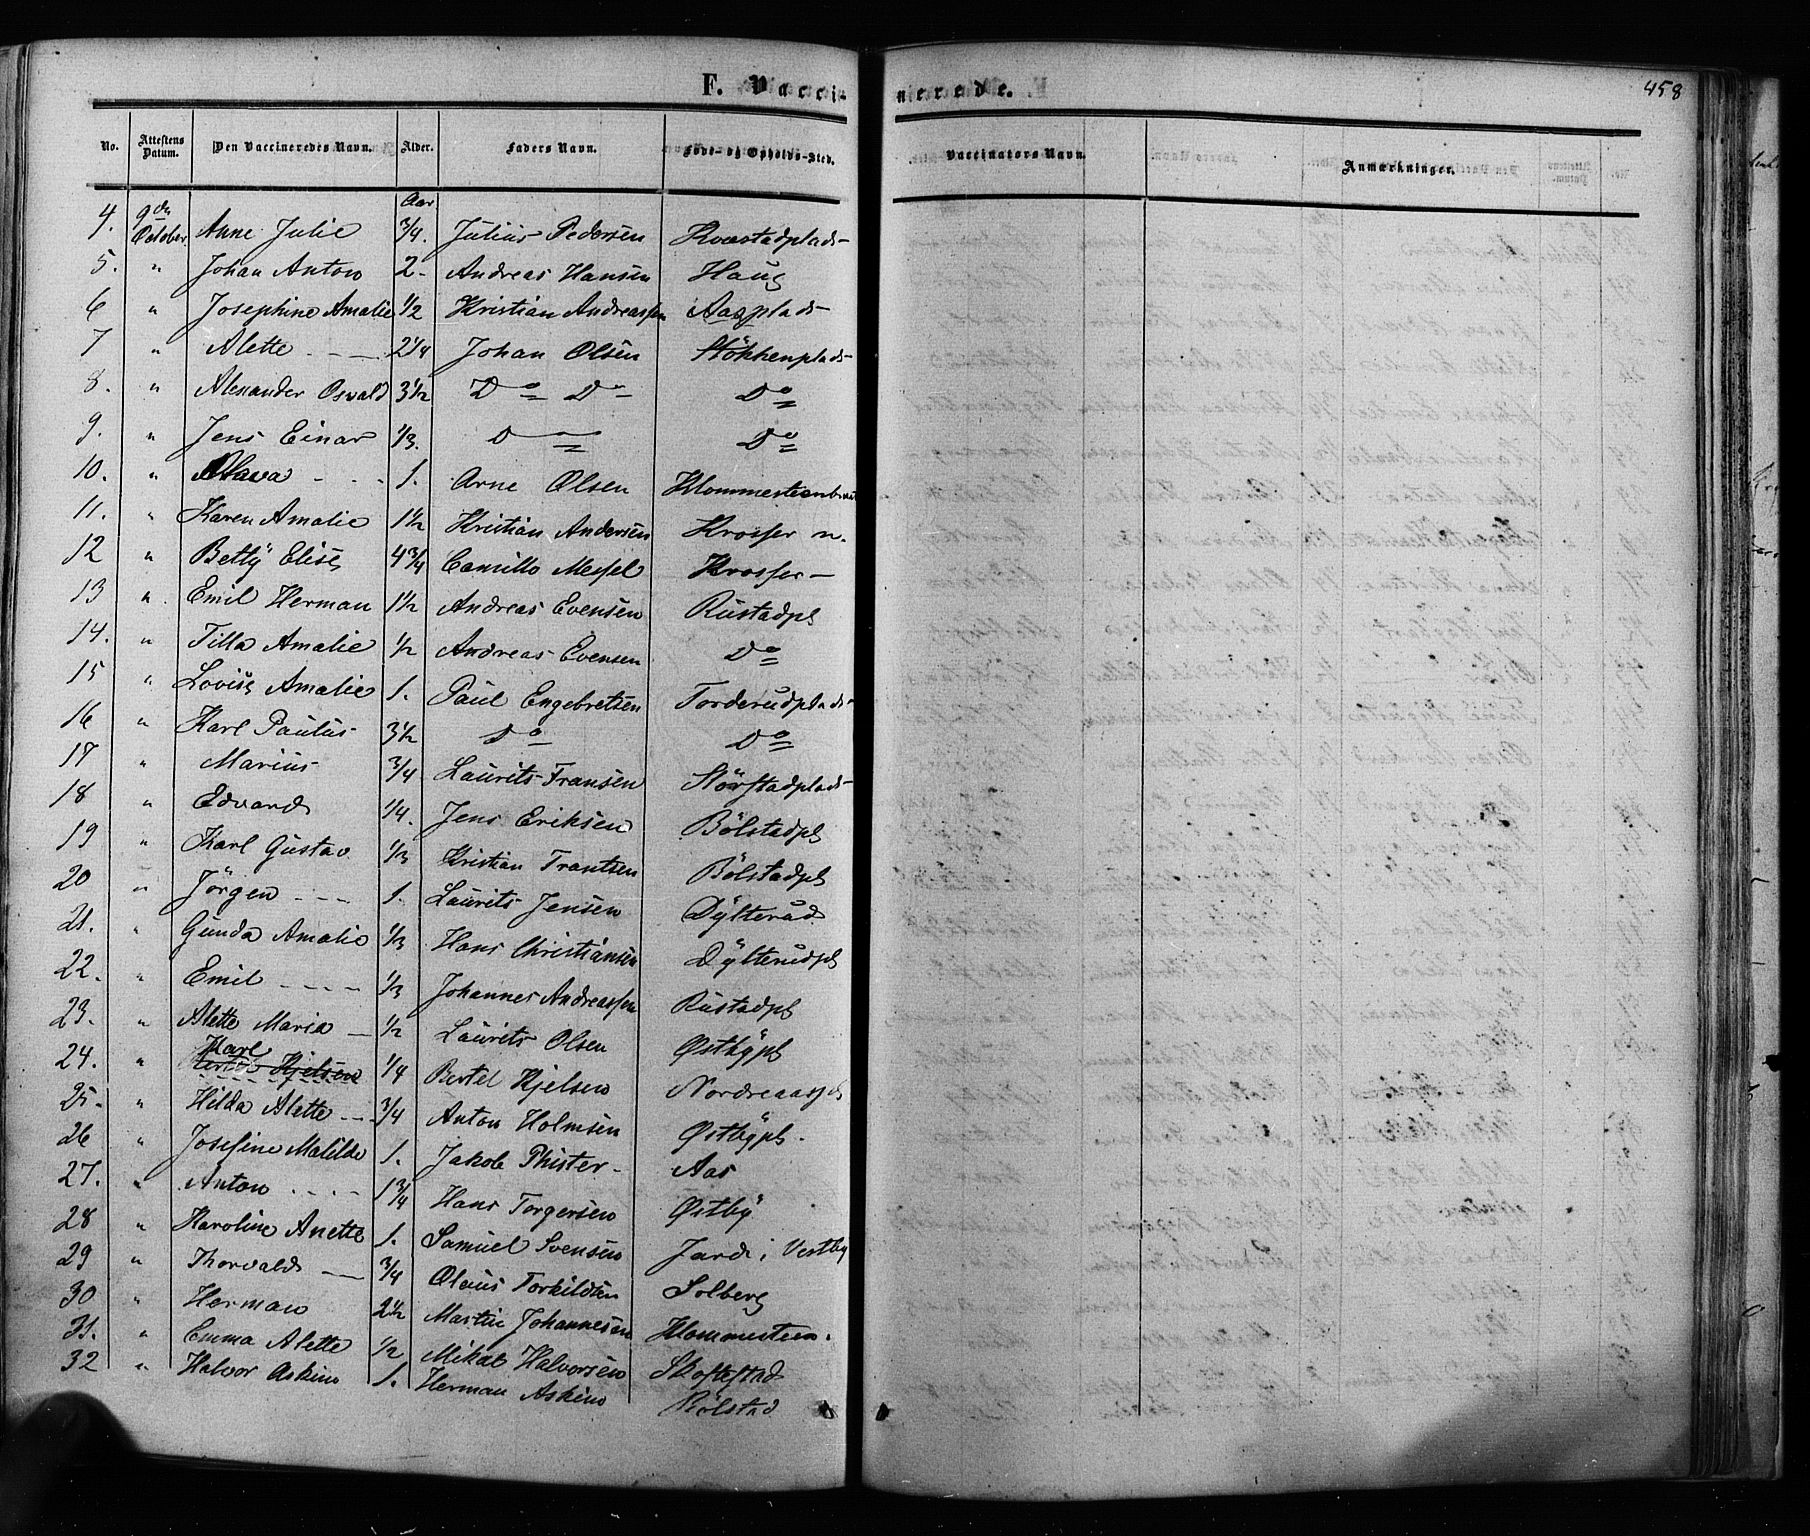 F. Vaccinerede.
458
No. Attestens Datum. Den Vaccineredes Navn. Alder. Faders Navn. Føde- og Opholds-Sted. Vaccinators Navn. Anmærkninger.
Aar
4. 9de October Anne Julie 3/4. Julius Pedersen Kvestadplads
5. " Johan Anton 2 Andreas Hansen Haug
6 " Josephine Amalie 1/2 Kristian Andreassen Aasplads
7 " Alette 2 1/4 Johan Olsen Stökkenplads
8. " Alexander Osvald 3 1/2 Do Do Do
9. " Jens Einar 1/3. Do Do
10. " 1. Arne Olsen
11. " Karen Amalie 1 1/2 Kristian Andersen Krosser n.
12 " Betty Elise 4 3/4 Camillo Messel Krosser
13 " Emil Herman 1 1/2 Andreas Evensen Rustadpl
14. " Tilla Amalie 1/2 Andreas Evensen Do
15 " Lovise Amalie 1. Paul Engebretsen Torderudplads
16 " Karl Paulus 3 1/2 Do Do
17 " Marius 3/4 Laurits Fransen Störstadplads
18 " Edvard 1/4. Jens Eriksen Bölstadpl
19 " Karl Gustav 1/3 Kristian Frantsen Bölstadpl
20 " Jörgen 1. Laurits Jensen Dÿlterud
21. " Gunda Amalie 1/3 Hans Christiansen Dÿlterudpl
22. " Emil 1/3 Johannes Andreassen Rustadpl
23. " Alette Maria 1/2 Laurits Olsen Østbÿpl
24. " Karl 1/4 Bertel Kjelsen Nordreaaspl
25. " Hilda Alette 3/4 Anton Holmsen Østbÿpl.
26 " Josefine Matilde 1. Jakob Phister Aas
27. " Anton 1 3/4 Hans Torgersen Østbÿ
28 " Karoline Anette 1. Samuel Svensen Jard i Vestby
29 " Thorvald 3/4 Olaus Torkildsen Solberg
30 " Herman 2 1/2 Martin Johannesen Klommesteen.
31. " Emma Alette 1/2 Mikal Halvorsen Skoftestad
32 " Halvor Askim 1. Herman Askim Bölstad